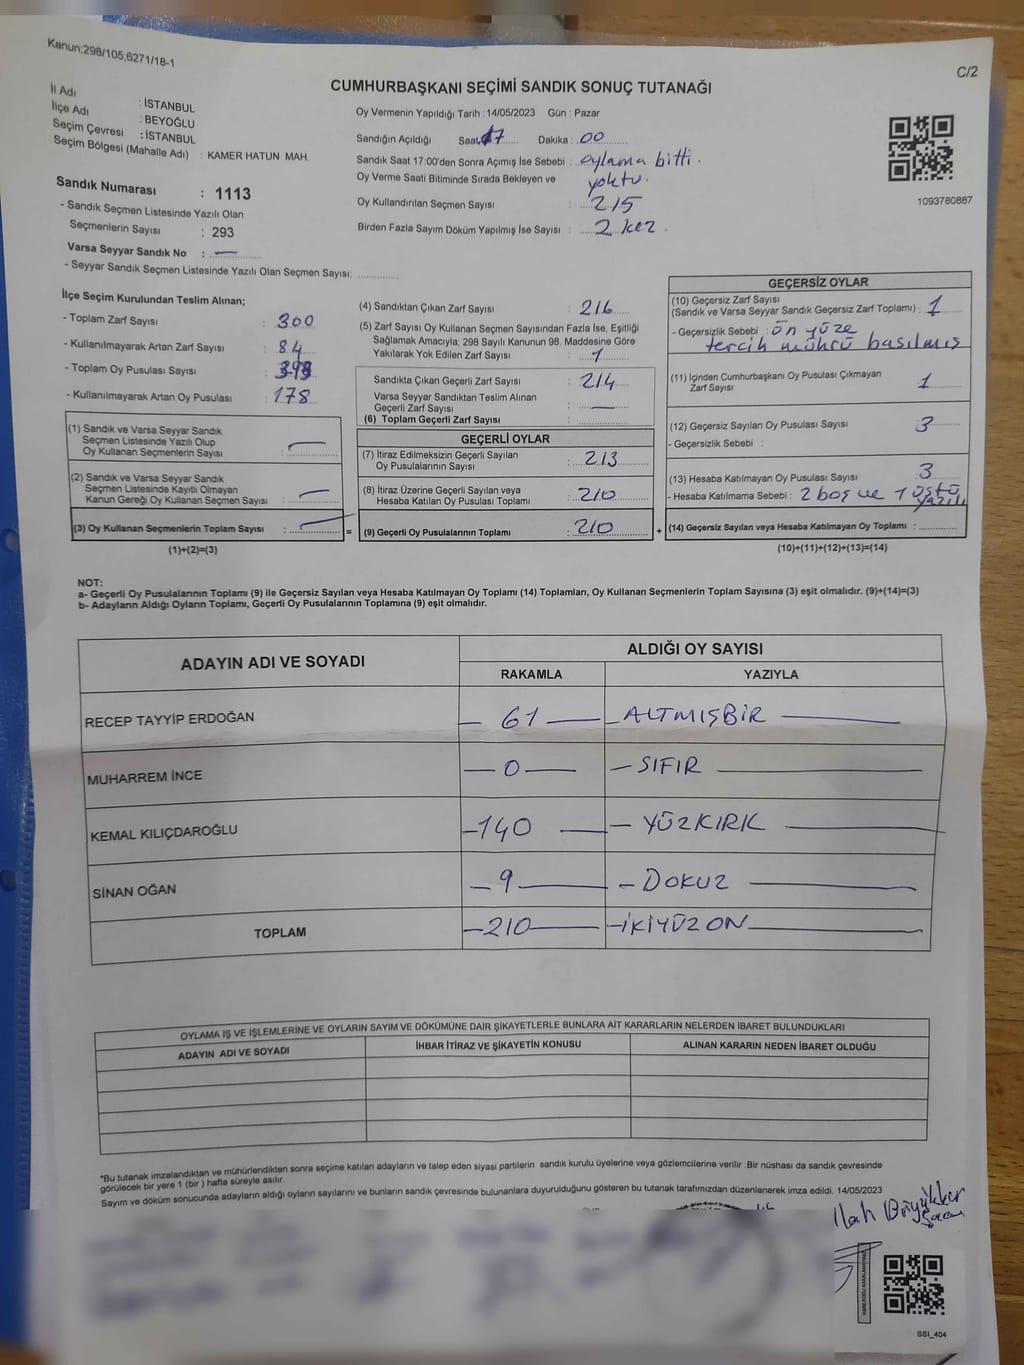 Kanun;298/105,6271/18-1
C/2
CUMHURBAŞKANI SEÇİMİ SANDIK SONUÇ TUTANAĞI
İl Adı : İSTANBUL
İlçe Adı : BEYOĞLU
Seçim Çevresi : İSTANBUL
Seçim Bölgesi (Mahalle Adı) : KAMER HATUN MAH.
Sandık Numarası : 1113
- Sandık Seçmen Listesinde Yazılı Olan
Seçmenlerin Sayısı : 293
Varsa Seyyar Sandık No : —
- Seyyar Sandık Seçmen Listesinde Yazılı Olan Seçmen Sayısı:
Oy Vermenin Yapıldığı Tarih :14/05/2023 Gün : Pazar
Sandığın Açıldığı Saat: 17 Dakika : 00
Sandık Saat 17:00'den Sonra Açımış İse Sebebi : oylama bitti.
Oy Verme Saati Bitiminde Sırada Bekleyen ve yoktu.
Oy Kullandırılan Seçmen Sayısı : 215
Birden Fazla Sayım Döküm Yapılmış İse Sayısı : 2 kez.
1093780887
İlçe Seçim Kurulundan Teslim Alınan;
- Toplam Zarf Sayısı : 300
- Kullanılmayarak Artan Zarf Sayısı : 84
- Toplam Oy Pusulası Sayısı :
- Kullanılmayarak Artan Oy Pusulası : 178
(1) Sandık ve Varsa Seyyar Sandık
Seçmen Listesinde Yazılı Olup
Oy Kullanan Seçmenlerin Sayısı : —
(2) Sandık ve Varsa Seyyar Sandık
Seçmen Listesinde Kayıtlı Olmayan
Kanun Gereği Oy Kullanan Seçmen Sayısı : —
(3) Oy Kullanan Seçmenlerin Toplam Sayısı : —
(1)+(2)=(3)
(4) Sandıktan Çıkan Zarf Sayısı : 216
(5) Zarf Sayısı Oy Kullanan Seçmen Sayısından Fazla İse, Eşitliği
Sağlamak Amacıyla; 298 Sayılı Kanunun 98. Maddesine Göre
Yakılarak Yok Edilen Zarf Sayısı : 1
Sandıkta Çıkan Geçerli Zarf Sayısı : 214
Varsa Seyyar Sandıktan Teslim Alınan
Geçerli Zarf Sayısı : —
(6) Toplam Geçerli Zarf Sayısı :
GEÇERLİ OYLAR
(7) İtiraz Edilmeksizin Geçerli Sayılan
Oy Pusulalarının Sayısı : 213
(8) İtiraz Üzerine Geçerli Sayılan veya
Hesaba Katılan Oy Pusulası Toplamı : 210
= (9) Geçerli Oy Pusulalarının Toplamı : 210 +
GEÇERSİZ OYLAR
(10) Geçersiz Zarf Sayısı
(Sandık ve Varsa Seyyar Sandık Geçersiz Zarf Toplamı) : 1
- Geçersizlik Sebebi : ön yüze
tercih mührü basılmış
(11) İçinden Cumhurbaşkanı Oy Pusulası Çıkmayan
Zarf Sayısı : 1
(12) Geçersiz Sayılan Oy Pusulası Sayısı : 3
- Geçersizlik Sebebi :
(13) Hesaba Katılmayan Oy Pusulası Sayısı : 3
- Hesaba Katılmama Sebebi : 2 boş ve 1 üstü
yazılı
(14) Geçersiz Sayılan veya Hesaba Katılmayan Oy Toplamı :
(10)+(11)+(12)+(13)=(14)
NOT:
a- Geçerli Oy Pusulalarının Toplamı (9) ile Geçersiz Sayılan veya Hesaba Katılmayan Oy Toplamı (14) Toplamları, Oy Kullanan Seçmenlerin Toplam Sayısına (3) eşit olmalıdır. (9)+(14)=(3)
b- Adayların Aldığı Oyların Toplamı, Geçerli Oy Pusulalarının Toplamına (9) eşit olmalıdır.
ADAYIN ADI VE SOYADI ALDIĞI OY SAYISI
RAKAMLA YAZIYLA
RECEP TAYYİP ERDOĞAN — 61 — — ALTMIŞBİR —
MUHARREM İNCE — 0 — — SIFIR —
KEMAL KILIÇDAROĞLU — 140 — — YÜZKIRK —
SİNAN OĞAN — 9 — — DOKUZ —
TOPLAM — 210 — — İKİYÜZON —
OYLAMA İŞ VE İŞLEMLERİNE VE OYLARIN SAYIM VE DÖKÜMÜNE DAİR ŞİKAYETLERLE BUNLARA AİT KARARLARIN NELERDEN İBARET BULUNDUKLARI
ADAYIN ADI VE SOYADI İHBAR İTİRAZ VE ŞİKAYETİN KONUSU ALINAN KARARIN NEDEN İBARET OLDUĞU
*Bu tutanak imzalandıktan ve mühürlendikten sonra seçime katılan adayların ve talep eden siyasi partilerin sandık kurulu üyelerine veya gözlemcilerine verilir .Bir nüshası da sandık çevresinde
görülecek bir yere 1 (bir ) hafta süreyle asılır.
Sayım ve döküm sonucunda adayların aldığı oyların sayılarını ve bunların sandık çevresinde bulunanlara duyurulduğunu gösteren bu tutanak tarafımızdan düzenlenerek imza edildi. 14/05/2023
SSI_404